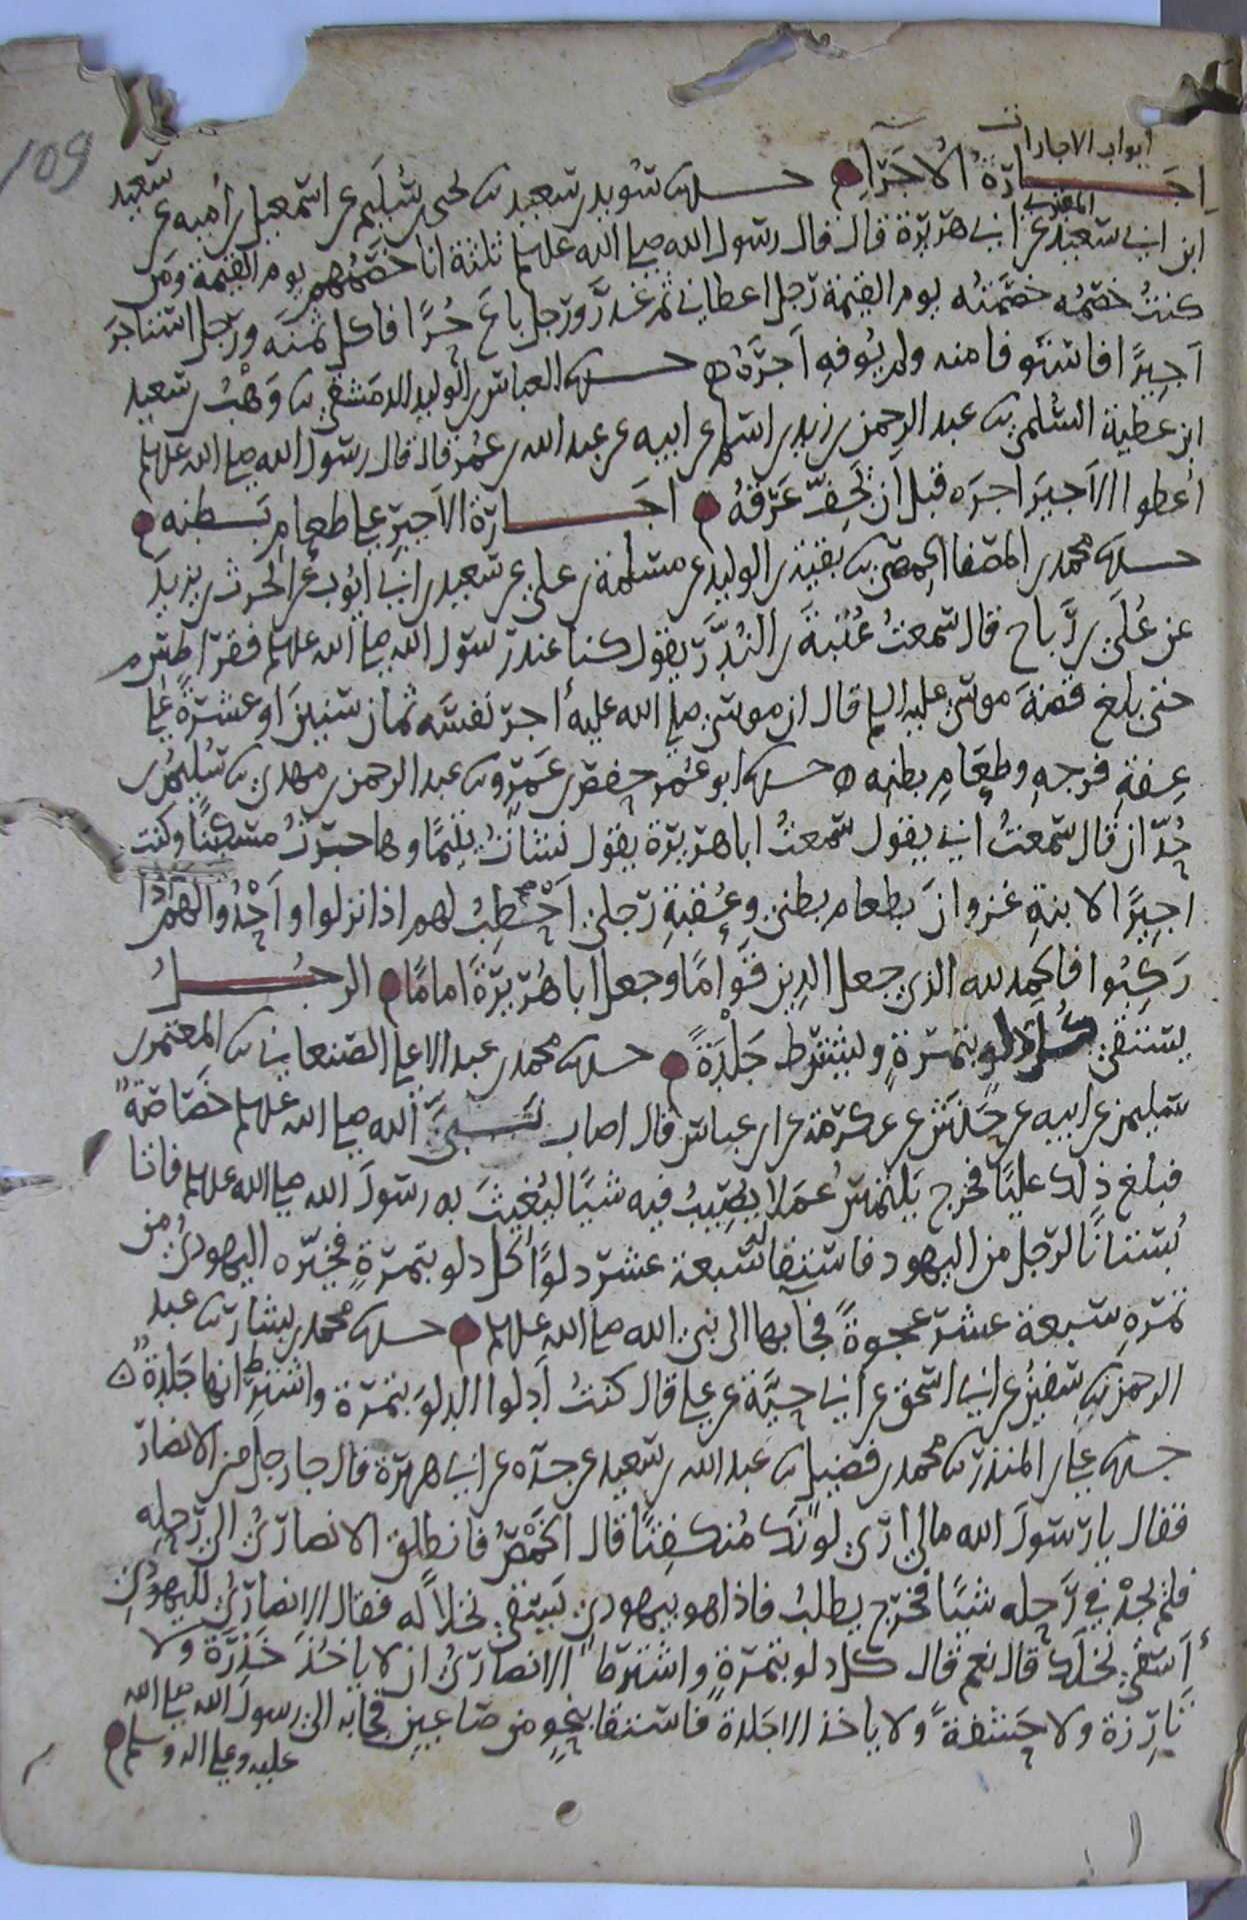 109
ابواب الاجارات
اجارة الاجراء حدثنا سويد بن سعيد ثنا يحيى بن سليم عن اسمعيل بن أمية عن سعيد
ابن ابي سعيد المقبري عن ابي هريرة قال قال رسول الله صلى الله عليه وسلم ثلثة انا خصمهم يوم القيمة ومن
كنتُ خصمُه خصمتُه يوم القيمة رجل اعطاني ثم غدر ورجل باع حُرًا فاكل ثمنَه ورجل استاجر
اجيرًا فاستوفا منه ولم يُوفِه اجرَهُ ه حدثنا العباس بن الوليد الدمشقي ثنا وَهْبُ بن سعيد
ابن عطية السُلمي ثنا عبد الرحمن بن زيد بن اسلم عن ابيه عن عبد الله بن عُمر قال قال رسول الله صلى الله عليه وسلم
أعطوا الاَجيرَ اجرَه قبل ان يَجِفّ عَرَقهُ اجَارة الاجيرِ على طعام بَطنه
حدثنا محمد بن المصفا الحمصي ثنا بقية بن الوليد عن مسلمة بن علي عن سعيد بن ابي ايوب عن الحرث بن يزيد
عن عُلَي بن رَباح قال سمعتُ عُتبةَ بن النُدّر يقول كنا عند رسول الله صلى الله عليه وسلم فقرا طسم
حتى بلغ قصةَ موسى عليه السلام قال ان موسى صلى الله عليه أجر نفسَه ثمان سنينَ او عشرةً على
عِفةِ فرجِهِ وطعَامِ بطنِه ه حدثنا ابو عُمر حفص بن عَمرو ثنا عبد الرحمن بن مهدي ثنا سُليمُ بن
حيّان قال سمعتُ ابي يقول سمعتُ ابا هريرة يقول نشاتُ يتيمًا وهاجرتُ مسكينًا وكنت
اجيرًا لابنةِ غزوانَ بطعام بطني وعُقبةِ رجلي اَحْطِبُ لهم اذا نزلوا واَحْدُوا لهم اذا
رَكِبُوا فالحمد لله الذي جعل الدين قوامًا وجعل ابا هُريرةَ امامًا الرجُلُ
يستقي كُل دلو بتمرةٍ ويشترط جَلْدَةً حدثنا محمد بن عبد الاعلى الصنعاني ثنا المعتمر بن
سليمن عن ابيه عن حَنش عن عكرمة عن ابن عباس قال اصاب نَبيَّ الله صلى الله عليه وسلم خَصَاصَةٌ
فبلغ ذلك عليًا فخرج يلتمس عُمَلا يُصيبُ فيه شيًا ليُغيثَ به رسولَ الله صلى الله عليه وسلم فاتا
بُستانًا لرجل من اليهود فاستقا له سبعة عشر دلوًا كل دلو بتمرةٍ فخيّره اليهوديُ من
تمرِهِ سبعة عشر عجوةً فجآ بها الى نبي الله صلى الله عليه وسلم حدثنا محمد بن بشار ثنا عبد
الرحمن ثنا سفين عن ابي اسحق عن ابي حيّة عن علي قال كنتُ اَدلوا الدلوَ بتمرة واشترِط انها جَلِدةٌ ه
حدثنا علي بن المنذر ثنا محمد بن فضيل ثنا عبد الله بن سعيد عن جده عن ابي هريرة قال جا رجل من الانصار
فقال يا رسولَ الله مالي ارى لونَك مُنكفِئًا قال الخَمْصُ فانطلق الانصاريُ الى رَحلِهِ
فلم يجدْ في رَحِله شيًا فخرج يطلبُ فاذا هو بيهودي يَسقي نخلاً له فقال الانصاريُ لليهودي
أَسقي نخلَك قال نعم قال كل دلو بتمرةٍ واشترط الانصاريُ ان لا ياخُذَ خَدِرَةً ولا
تَارِزةً ولا حَشفةً ولا ياخذ الا جَلدةً فاستقا بنحوٍ من صَاعَينِ فجا به الى رسول الله صلى الله
عليه وعلى اله وسلم